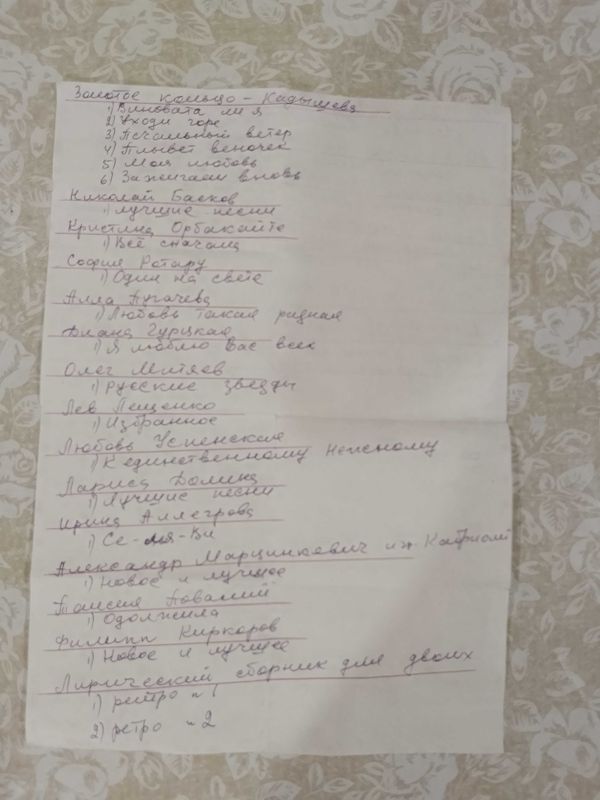 Золотое кольцо - Кадышева
1) Виновата ли я
2) Уходи горе
3) Печальный ветер
4) Плывет веночек
5) Моя любовь
6) Зажигаем вновь
Николай Басков
1) Лучшие песни
Кристина Орбакайте
1) Всё сначала
София Ротару
1) Один на свете
Алла Пугачева
1) Любовь такая родная
Диана Гурцкая
1) Я люблю Вас всех
Олег Митяев
1) русские звезды
Лев Лещенко
1) Избранное
Любовь Успенская
1) К единственному нежному
Лариса Долина
1) Лучшие песни
Ирина Аллегрова
1) Се-ля-Ви
Александр Марцинкевич и
1) Новое и лучшее
Таисия Повалий
1) Одолжила
Филипп Киркоров
1) Новое и лучшее
Лирический сборник для двоих
1) ретро n 1
2) ретро n 2